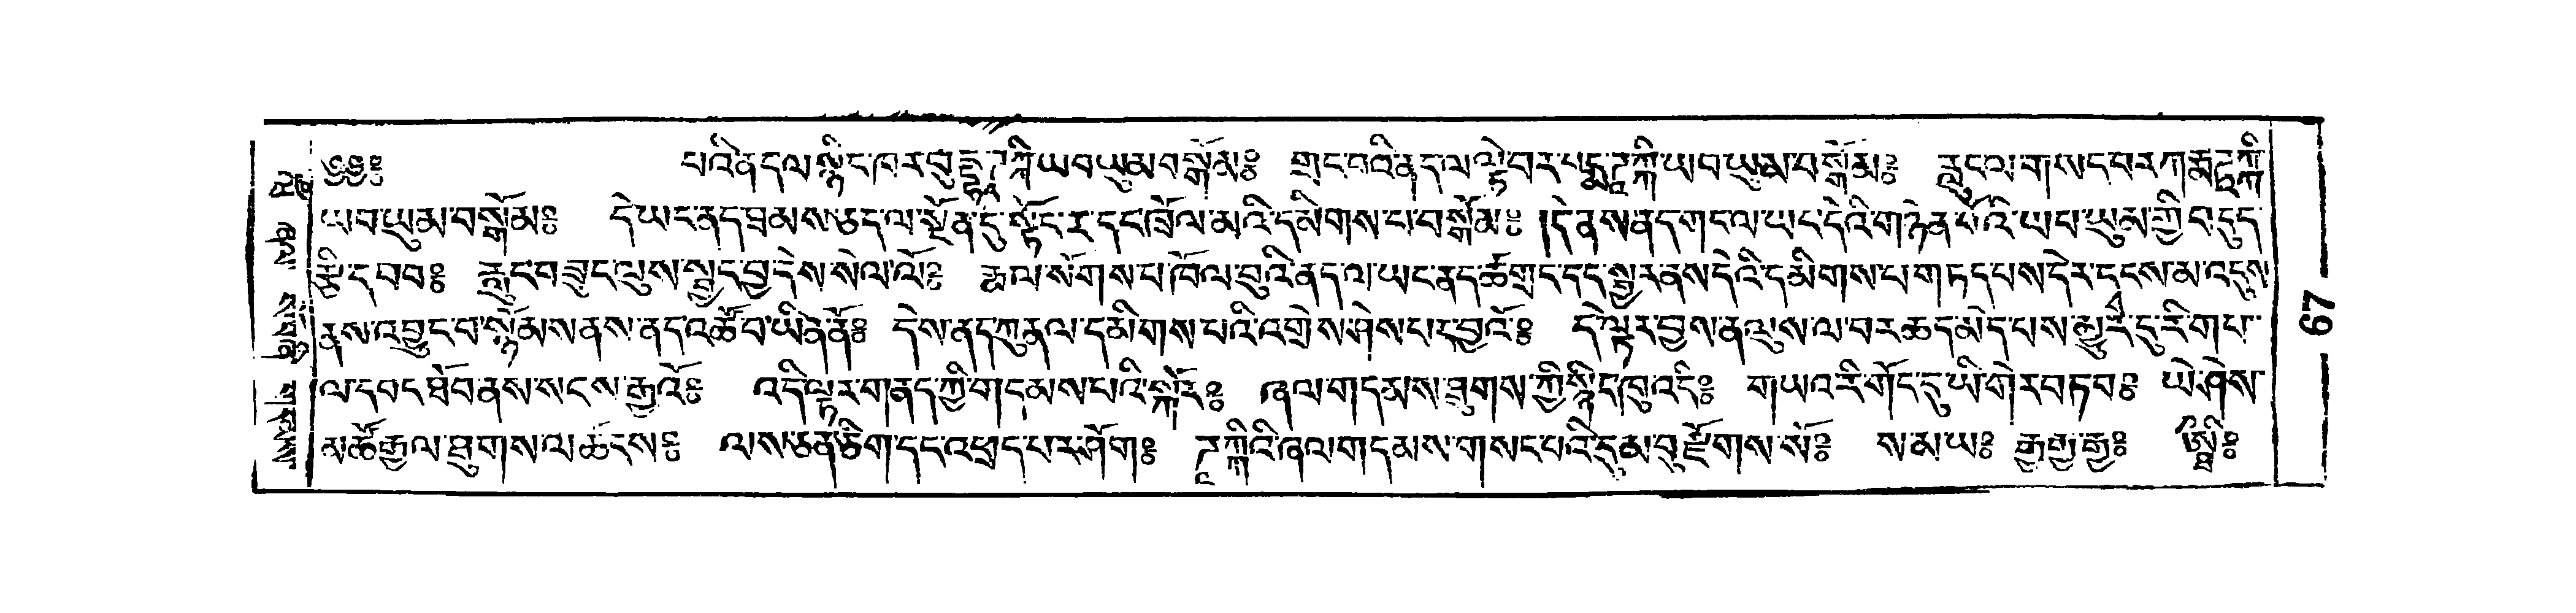 ༄༅༔ པའི་ནད་ལ་སྙིང་ཁར་བུདྡྷ་ཌཱཀྐི་ཡབ་ཡུམ་བསྒོམ༔ གྲང་བའི་ནད་ལ་ལྟེ་བར་པདྨ་ཌཱཀྐི་ཡབ་ཡུམ་བསྒོམ༔ རླུང་ལ་གསང་བར་ཀརྨ་ཌཱཀྐི་
ཡབ་ཡུམ་བསྒོམ༔ དེ་ཡང་ནད་ཐམས་ཅད་ལ་སྔོན་དུ་སྟོང་ར་དང་ཁྲོལ་མའི་དམིགས་པ་བསྒོམ༔ །དེ་ནས་ནད་གང་ལ་ཡང་དེའི་གཉེན་པོའི་ཡབ་ཡུམ་གྱི་བདུད་
རྩི་དབབ༔ རླུང་བཟུང་ལུས་སྦྱང་བྱ་དེས་སེལ་ལོ༔ རྨ་ལ་སོགས་པ་ཁོལ་བུའི་ནད་ལ་ཡང་ནད་ཚོ་གྲང་དང་སྦྱར་ནས་དེའི་དམིགས་པ་གཏད་པས་དེར་དྭངས་མ་འདུས་
ནས་འབྱུང་བ་སྙོམས་ནས་ནད་འཚོ་བ་ཡིན་ནོ༔ དེས་ནད་ཀུན་ལ་དམིགས་པའི་འགྲེས་ཤེས་པར་བྱའོ༔ དེ་ལྟར་བྱས་ན་ལུས་ལ་བར་ཆད་མེད་པས་མྱུར་དུ་རིག་པ་
ལ་དབང་ཐོབ་ནས་སངས་རྒྱའོ༔ འདི་ལྟར་གནད་ཀྱི་གདམས་པའི་སྐོར༔ ཞལ་གདམས་ཐུགས་ཀྱི་སྙིང་ཁུ་འདི༔ གཡའ་རི་གོང་དུ་ཡི་གེར་བཏབ༔ ཡེ་ཤེས་
མཚོ་རྒྱལ་ཐུགས་ལ་ཆངས༔ ལས་ཅན་ཅིག་དང་འཕྲད་པར་ཤོག༔ ཌཱཀྐིའི་ཞལ་གདམས་གསང་བའི་དུམ་བུ་རྫོགས་སོ༔ ས་མ་ཡ༔ རྒྱ་རྒྱ་རྒྱ༔